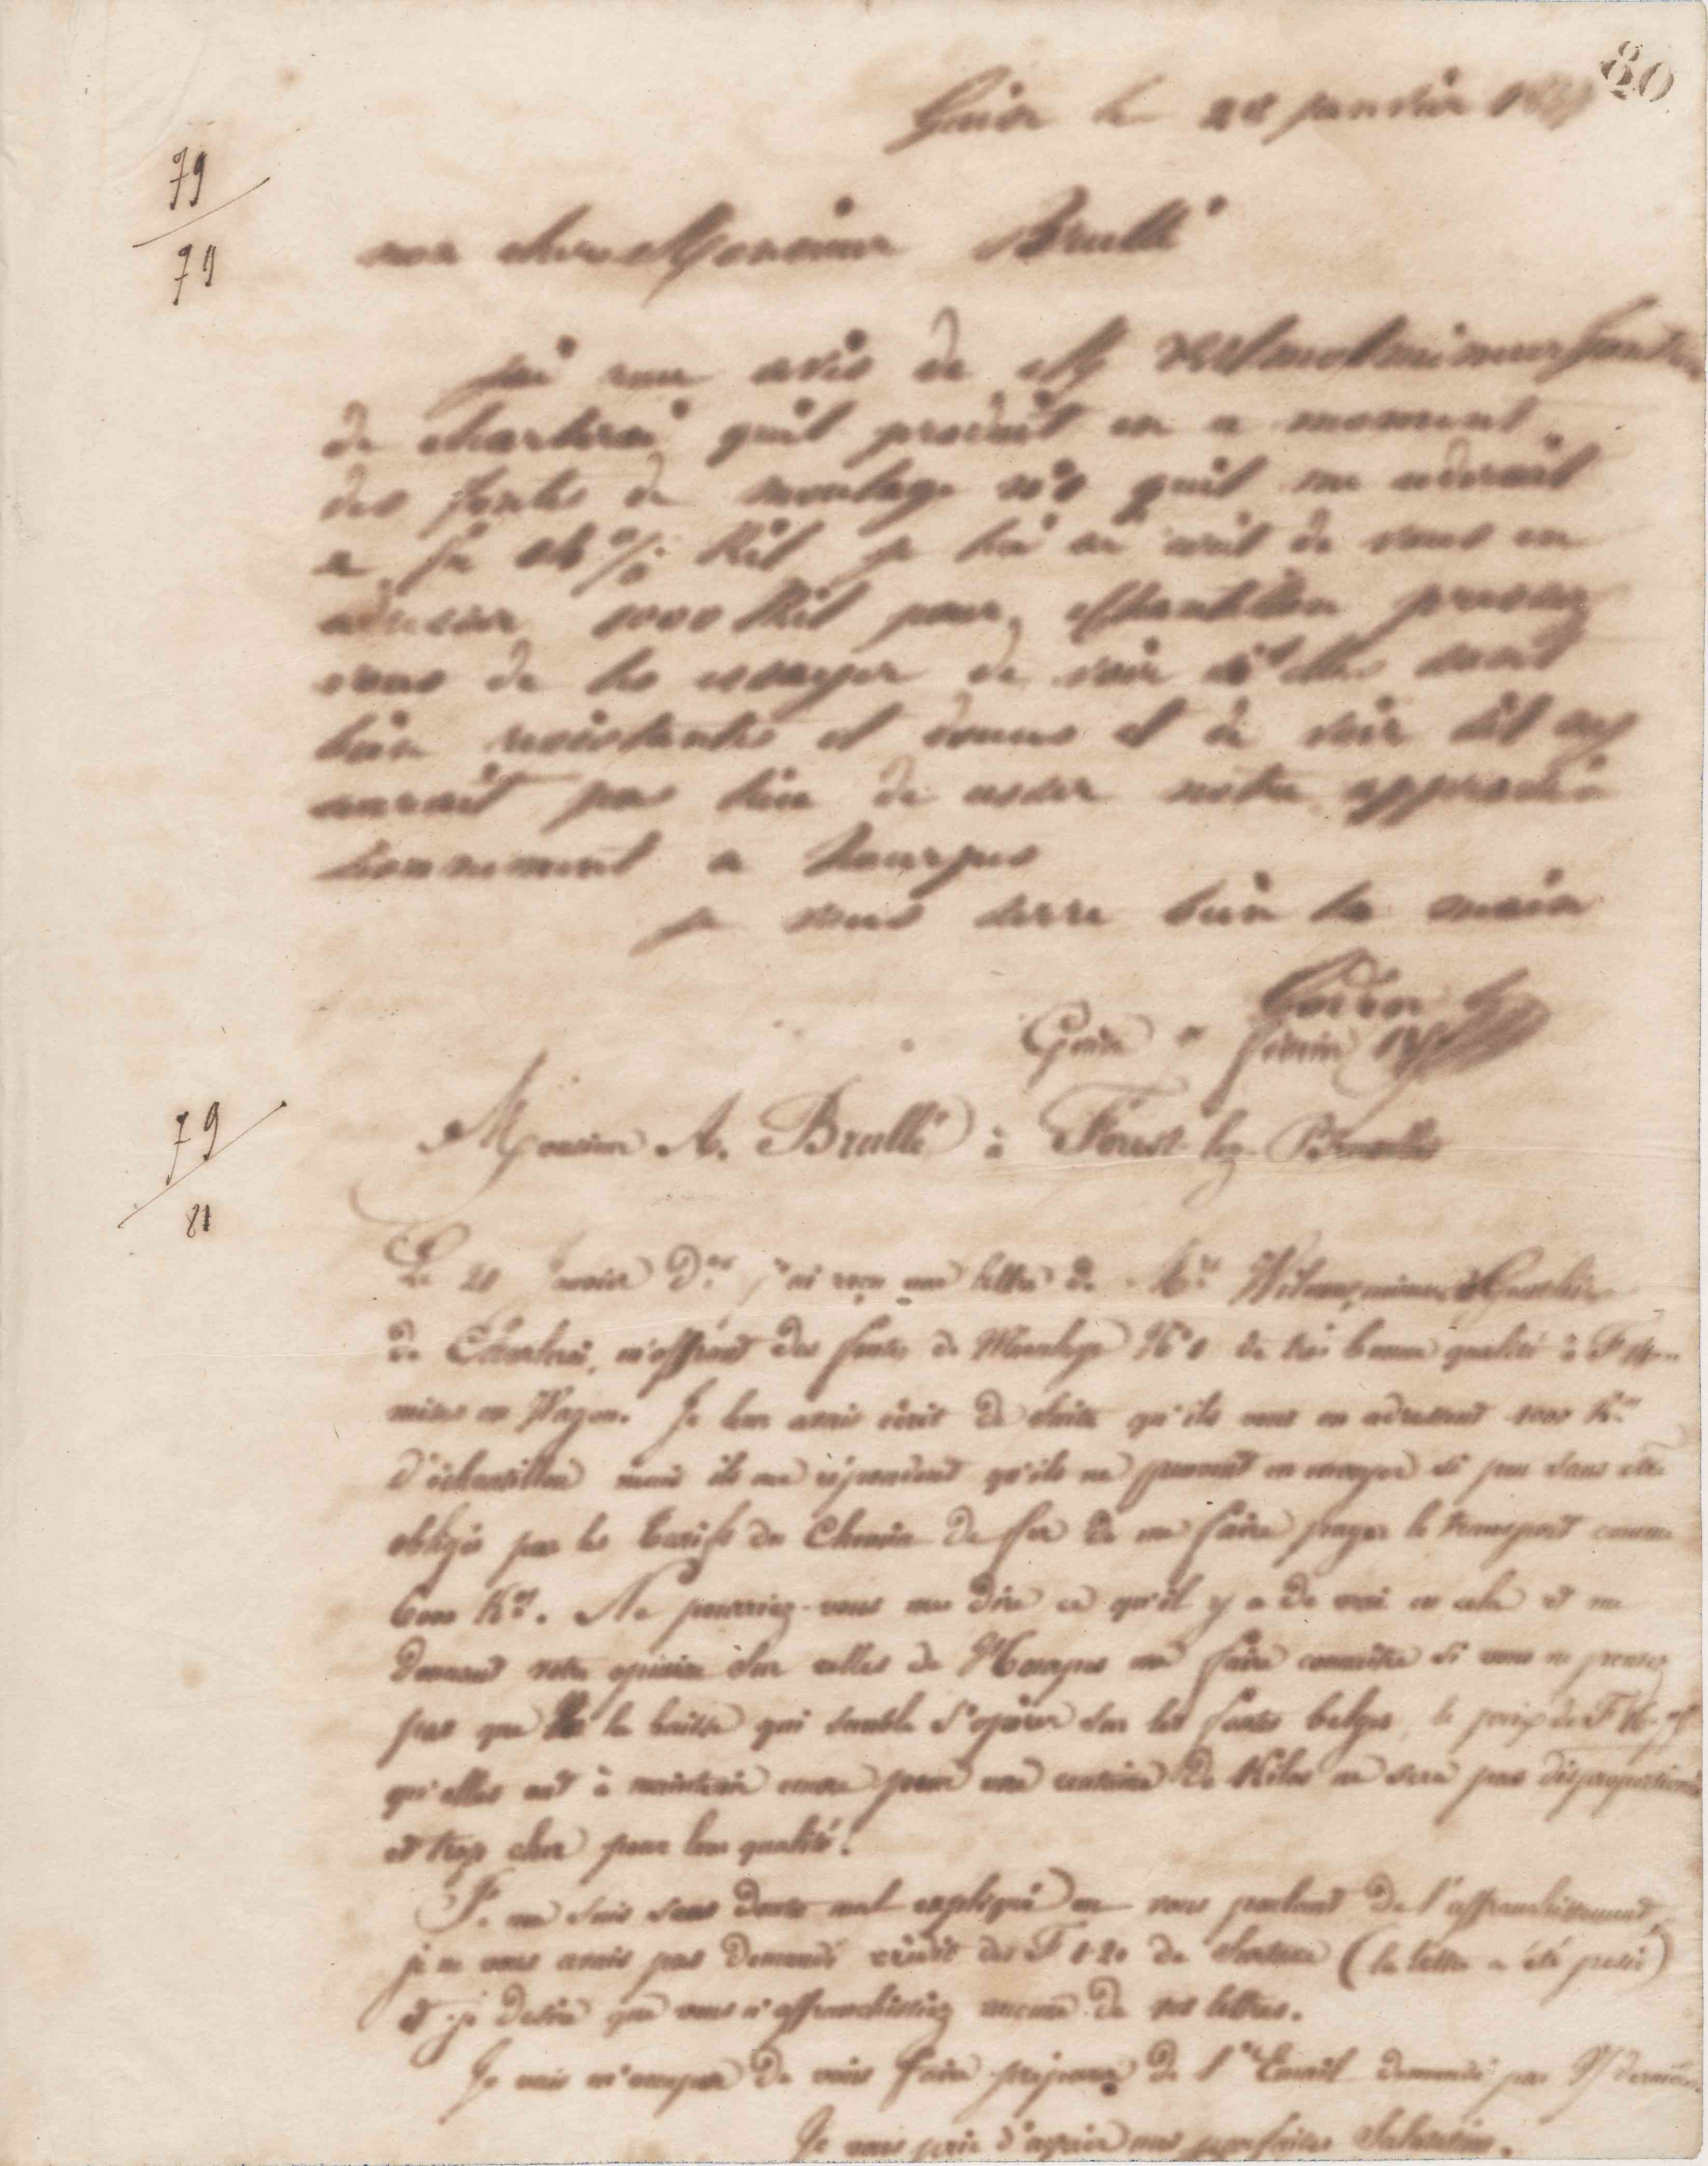 80
Guise le 28 janvier
79
79
mon cher Monsieur Brullé
j'ai reçu avis de M
de charleroi quil produit en ce moment
des fontes de moulage quil me cederait
a Kil je lui ai écrit de vous en
adresser 1000 Kil pour échantillon pressez
vous de les essayer de voir si elles sont
bien resistantes et douces et de voir sil ny
aurait pas lieu de cesser notre approvi
sionnement a hourpes
je vous serre bien la main
Godin
Guise février
Monsieur A. Brullé à Forest lez Bruxelles
79
81
Le 28 Janvier Der j'ai reçu une lettre de
de Charleroi, m'offrant des fontes de Moulage de très bonne qualité à F
mises en Wagon. Je leur avais écrit de suite qu'ils vous en adressent 1000 Kos
d'échantillon mais ils me répondent qu'ils ne peuvent en envoyer si peu sans être
obligés par les tarifs du Chemin de fer de me faire payer le transport comme
6000 Kos. Ne pourriez-vous me dire ce qu'il y a de vrai en cela et me
donnant votre opinion sur celles de Hourpes me faire connaître si vous ne pensez
pas que la baisse qui semble s'opérer sur les fontes belges, le prix de F
qu'elles ont à maintenir encore pour une centaine de Kilos ne sera pas disproportionné
et trop cher pour leur qualité.
Je me suis sans doute mal expliqué en vous parlant de l'affranchissement,
je ne vous avais pas demandé crédit des F 1.20 de (la lettre a été pesée)
et je désire que vous n'affranchissiez aucune de vos lettres.
Je vais m'occuper de vous faire préparer de l'Email demandé par
Je vous prie d'agréer mes parfaites Salutations.